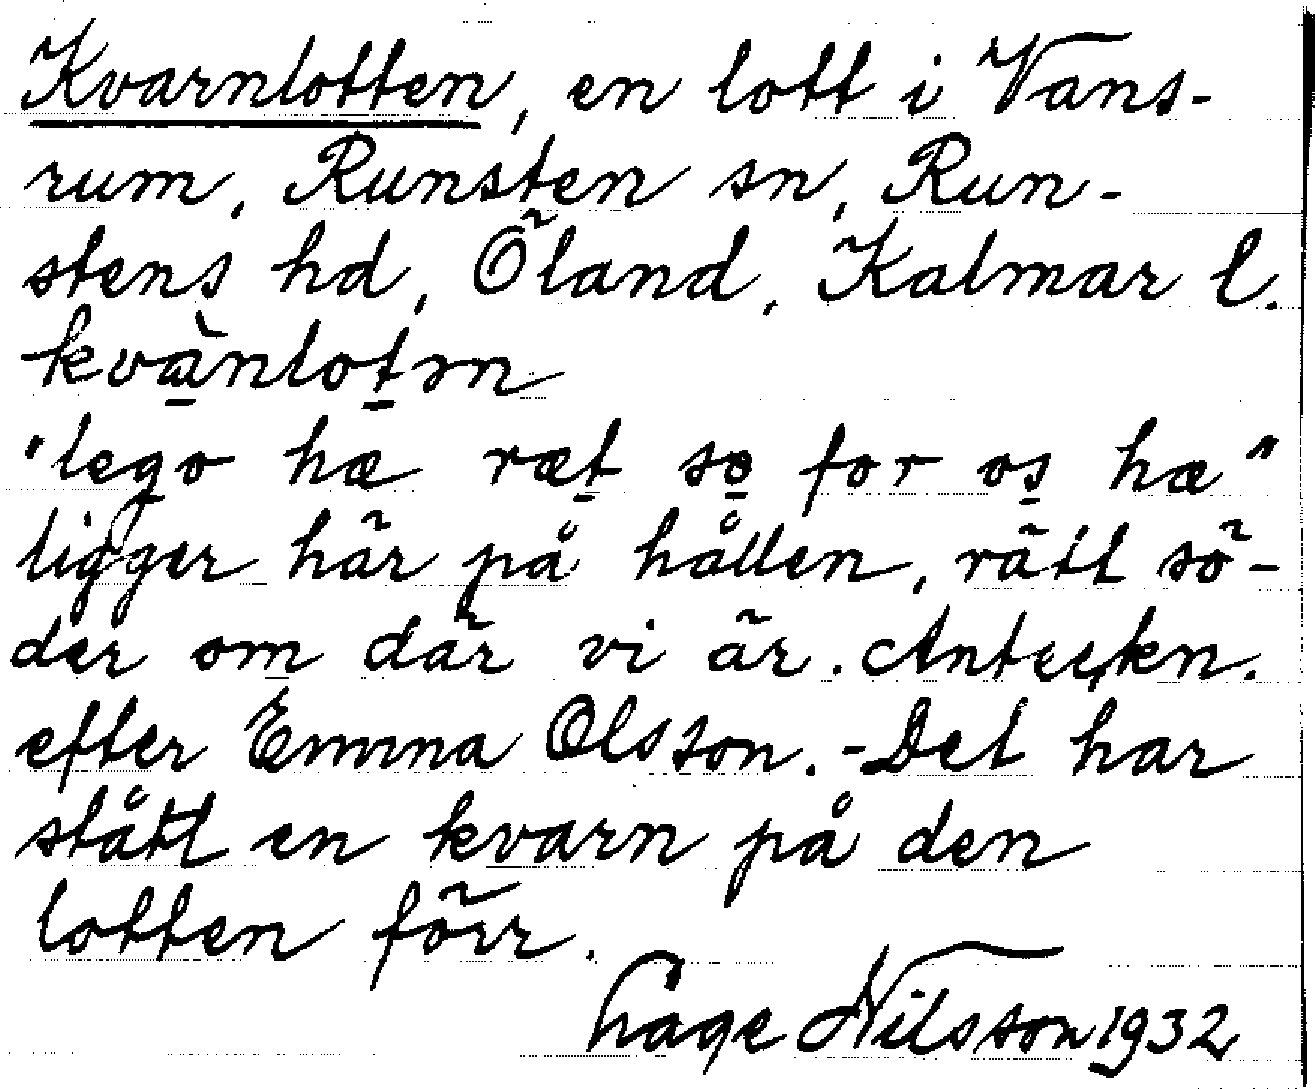 Kvarnlotten, en lott i Vans-
rum, Runsten sn, Run-
stens hd, Öland, Kalmar l.
kvànlotn
"lego hæ ræt so for os hæ"
ligger här på hållen, rätt sö-
der om där vi är. Anteckn.
efter Emma Olsson. - Det har
stått en kvarn på den
lotten förr.
Lage Nilsson 1932